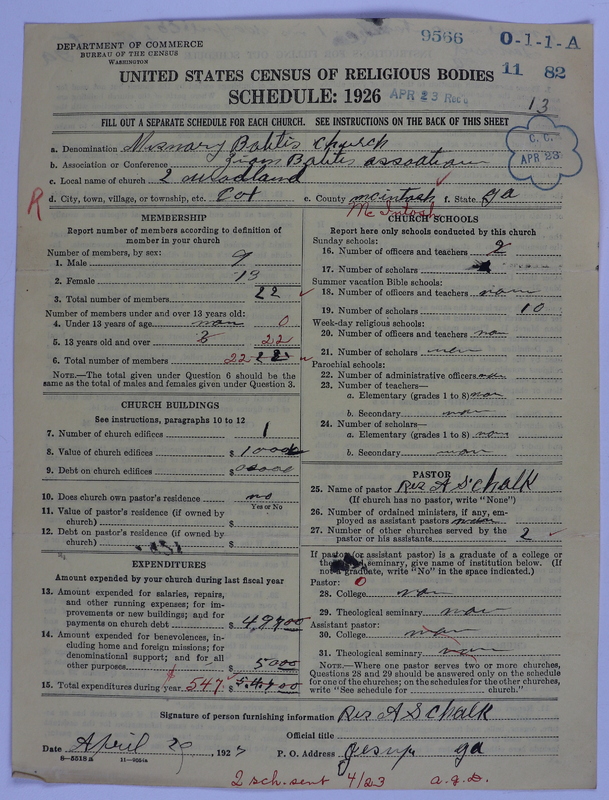 DEPARTMENT OF COMMERCE
BUREAU OF THE CENSUS
WASHINGTON
9566
0-1-1-A
UNITED STATES CENSUS OF RELIGIOUS BODIES
11 82
SCHEDULE: 1926
APR 23 Rec'd
13
FILL OUT A SEPARATE SCHEDULE FOR EACH CHURCH. SEE INSTRUCTIONS ON THE BACK OF THIS SHEET
C. C.
APR 23
a. Denomination Misnary Babtis Church
b. Association or Conference Zion Babtis assoation
c. Local name of church 2 woodland
R
d. City, town, village, or township, etc. Cox e. County mcintosh f. State ga
McIntosh
MEMBERSHIP
Report number of members according to definition of member in your church
Number of members, by sex:
1. Male 9
2. Female 13
3. Total number of members 22
Number of members under and over 13 years old:
4. Under 13 years of age non 0
5. 13 years old and over 22
6. Total number of members 22 22
NOTE.—The total given under Question 6 should be the same as the total of males and females given under Question 3.
CHURCH BUILDINGS
See instructions, paragraphs 10 to 12
7. Number of church edifices 1
8. Value of church edifices $
9. Debt on church edifices $
10. Does church own pastor's residence no
Yes or No
11. Value of pastor's residence (if owned by church) $
12. Debt on pastor's residence (if owned by church) $
EXPENDITURES
Amount expended by your church during last fiscal year
13. Amount expended for salaries, repairs, and other running expenses; for improvements or new buildings; and for payments on church debt $ 49700
14. Amount expended for benevolences, including home and foreign missions; for denominational support; and for all other purposes $ 5000
15. Total expenditures during year $ 547. $ 54700
CHURCH SCHOOLS
Report here only schools conducted by this church
Sunday schools:
16. Number of officers and teachers 2
17. Number of scholars
Summer vacation Bible schools:
18. Number of officers and teachers non
19. Number of scholars 10
Week-day religious schools:
20. Number of officers and teachers non
21. Number of scholars non
Parochial schools:
22. Number of administrative officers non
23. Number of teachers—
a. Elementary (grades 1 to 8) non
b. Secondary non
24. Number of scholars—
a. Elementary (grades 1 to 8) non
b. Secondary non
PASTOR
25. Name of pastor Rev A S Chalk
(If church has no pastor, write "None")
26. Number of ordained ministers, if any, employed as assistant pastors non
27. Number of other churches served by the pastor or his assistants 2
If pastor (or assistant pastor) is a graduate of a college or theological seminary, give name of institution below. (If not a graduate, write "No" in the space indicated.)
Pastor: 0
28. College non
29. Theological seminary non
Assistant pastor:
30. College non
31. Theological seminary non
NOTE.—Where one pastor serves two or more churches, Questions 28 and 29 should be answered only on the schedule for one of the churches; on the schedules for the other churches, write "See schedule for ______ church."
Signature of person furnishing information Rev A S Chalk
Official title
Date April 20, 1927
P. O. Address Jesup ga
8—5518a 11—9054a
2 sch. sent 4/23 a.g.D.